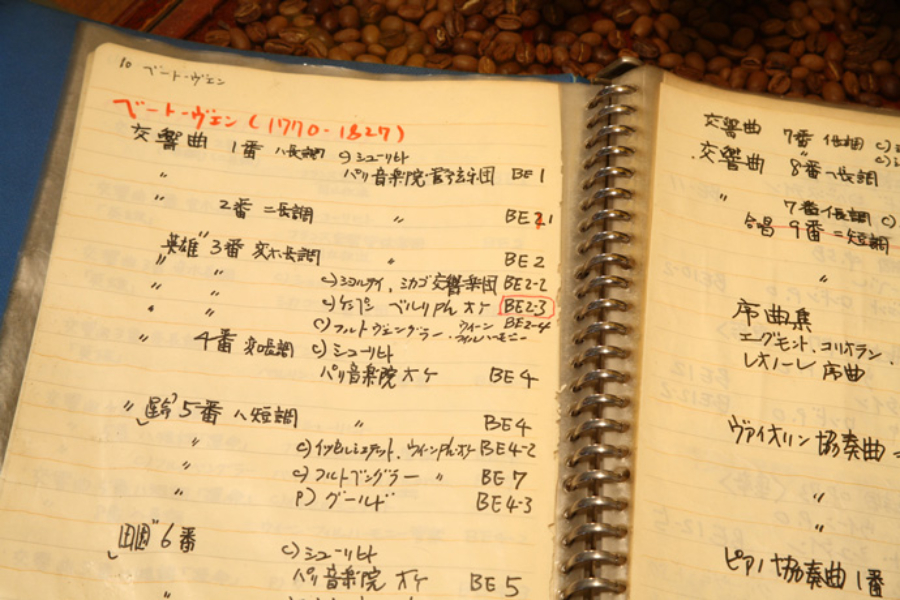 10 ベートーヴェン
ベートーヴェン (1770-1827)
交響曲 1番 ハ長調 C)シューリヒト
パリ音楽院・管弦楽団 BE1
〃 2番 ニ長調 〃 BE2.1
〃 "英雄" 3番 変ホ長調 〃 BE2
〃 〃 C)ショルティ, シカゴ交響楽団 BE2-2
〃 〃 C) ベルリPh オケ BE2-3
C)フルトヴェングラー・ウィーン・フィルハーモニー BE2-4
〃 4番 変ロ長調 C)シューリヒト
パリ音楽院オケ BE4
〃 5番 ハ短調 〃 BE4
〃 C)イッセルシュテット, ウィーンPh.オケ BE4-2
〃 C)フルトベングラー 〃 BE7
〃 P)グールド BE4-3
"田園" 6番 C)シューリヒト
パリ音楽院 オケ BE5
交響曲 7番 イ長調 C)
交響曲 8番 ヘ長調 C)
〃 7番 イ長調 C)
合唱 9番 ニ短調
〃
序曲集
エグモント.コリオラン.
レオノーレ 序曲
ヴァイオリン協奏曲
〃
〃
ピアノ協奏曲 1番